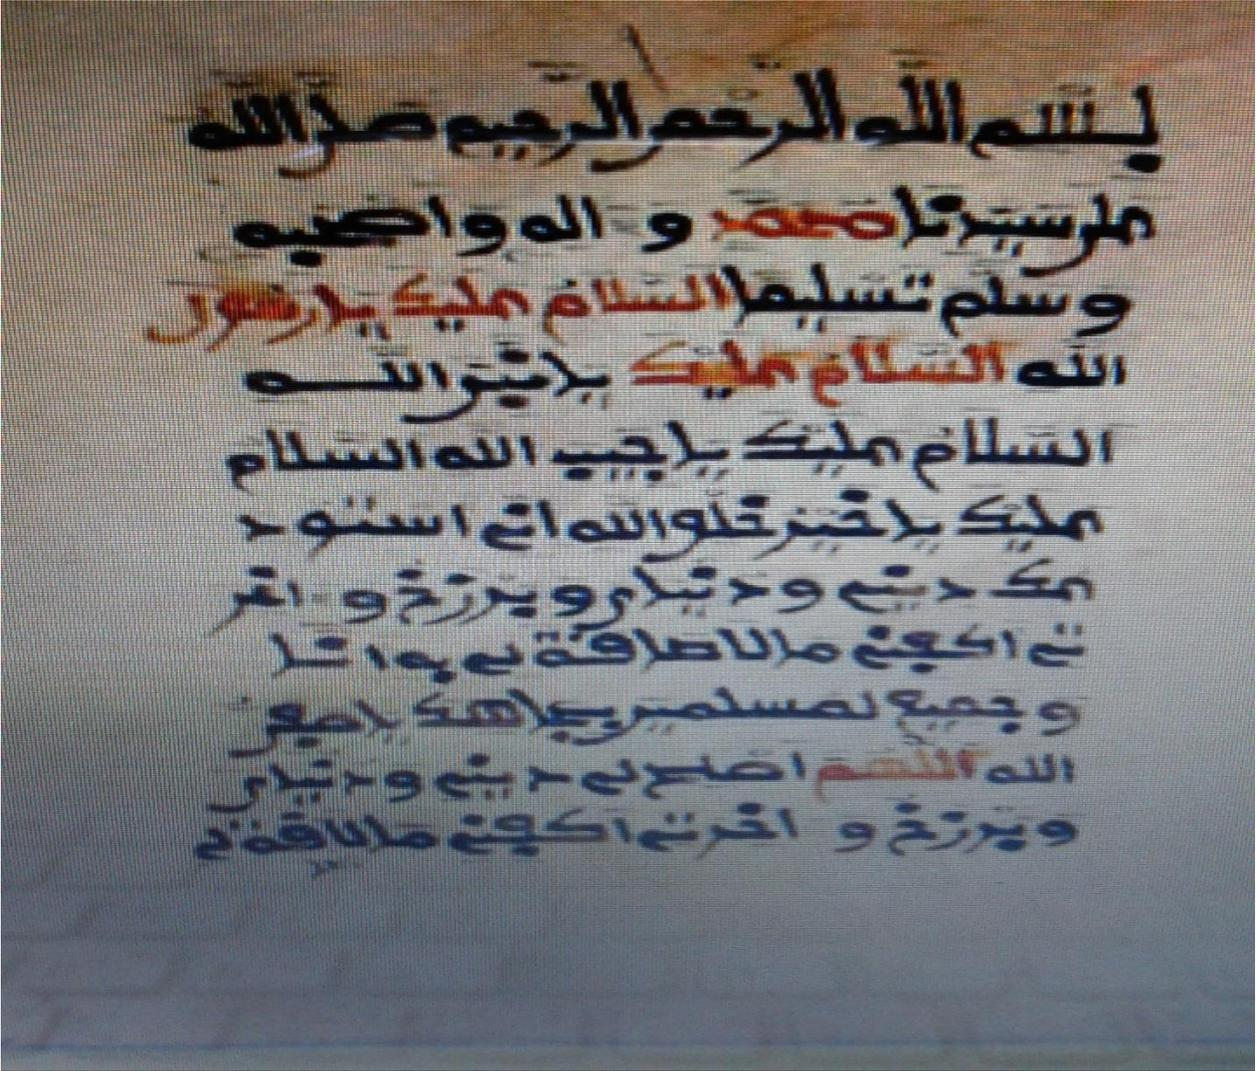 بسم الله الرحمن الرحيم صلى الله
على سيدنا محمد و اله واصحبه
وسلم تسليما السلام عليك يا رسول
الله السلام عليك يا نبي الله
السلام عليك يا حبيب الله السلام
عليك يا خير خلق الله اني استود
عك ديني ودنياي وبرزخ و اخر
تي اكفني ما لا طاقة لي به وانا
وجميع لمسلمين بجاهك يا صفي
الله اللهم اصلح لي ديني ودنياي
وبرزخ و اخرتي اكفني ما لاقة لي